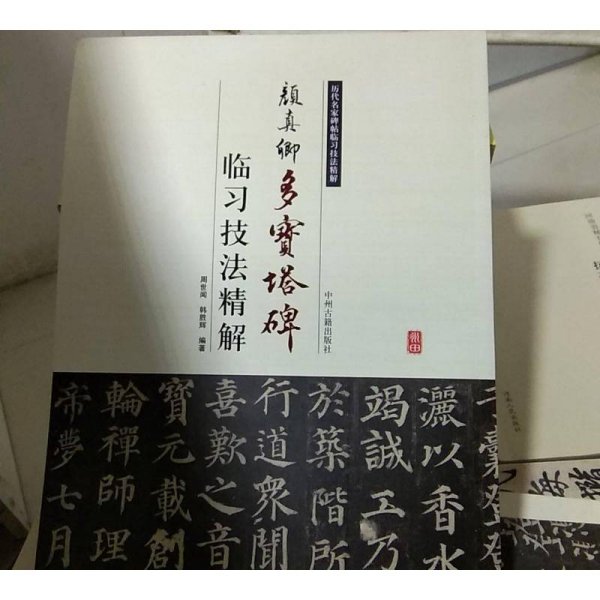 历代名家碑帖临习技法精解
顏真卿多寶塔碑
临习技法精解
周世闻 韩胜辉 编著
中州古籍出版社
灑以香水
竭誠工乃
於築階所
行道眾聞
喜歎之音
寶元載創
輪禪師理
帝夢七月